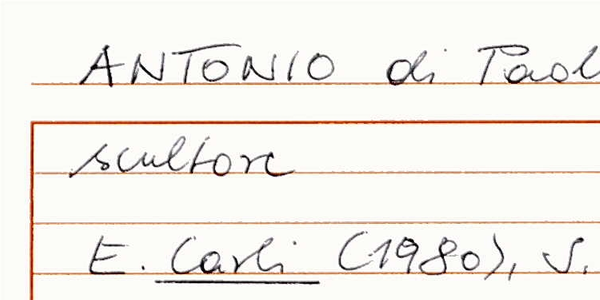 ANTONIO di Paol
scultore
E. Carli (1980), S.